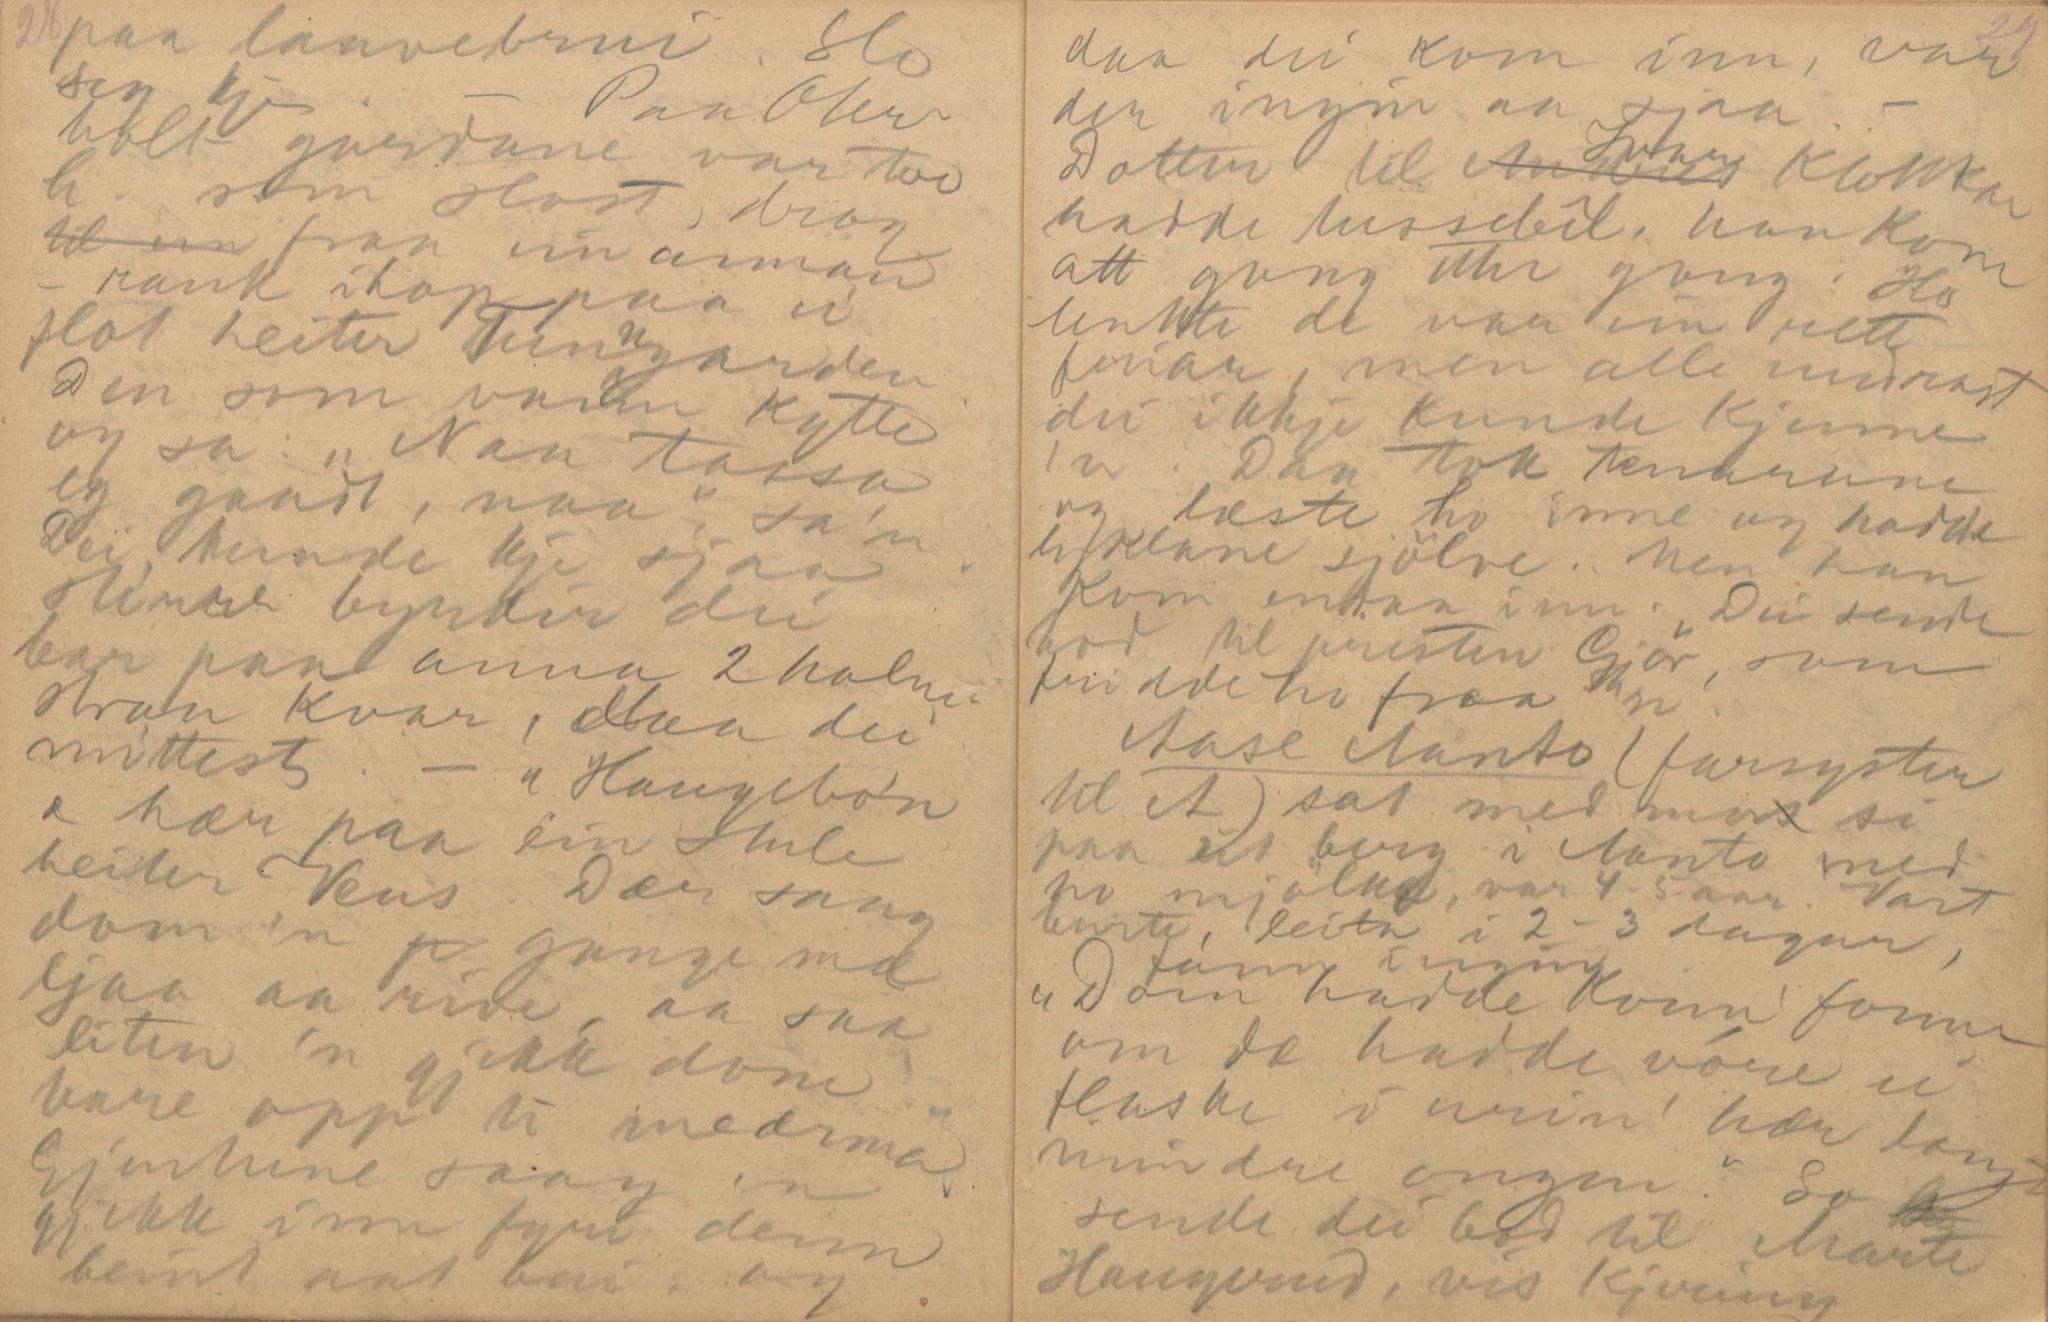 28
paa laavebrui. Slo
seg kje. — Paa Oter-
holt gardane var too
h. som slost, drog
til ein fraa ein annan
- rank ihop paa ei
flot heiter Tunngarden
Den som vann kytte
og sa: "Naa tassa
eg gaadt, naa", sa'n.
Dei kunde kje sjaa
större byrdir dei
bar paa anna 2 halm-
straa kvar, dæa dei
mittest. — "Haugebón
æ hær paa ein stule
heiter Veus. Dær saag
dom 'n gange mæ
ljaa aa rive, aa saa
liten 'n gjikk dom
bare opp ti medrmä"
Gjurhine saag 'n
gjikk inn fyri denn
beint aat bui. og
29
daa dei kom inn, var
der ingin aa sjaa. —
Dotter til Anders Ivar Klokkar
hadde hussebil. han kom
att gong etter gong. Ho
tenkte de var ein rette
friar, men alle undrast
dei ikkje kunde kjenne
'n. Daa tok tenarane
og læste ho inne og hadde
lyklane sjölve. Men han
kom endaa inn. Dei sende
bod til presten Gjör, som
fridde ho fraa 'n.
Aase Aanto (farsyster
til A) sat med mor si
paa eit berg i Aanto med
ho mjölka, var 4-5 aar. Vart
burte, leita i 2-3 dagar,
fann ingin
"Dom hadde konn' fonne
om dæ hadde vóre ei
flaske i urin' hær langt
mindre ongen." So
sende dei bod til Marte
Haugerud, vis kjering